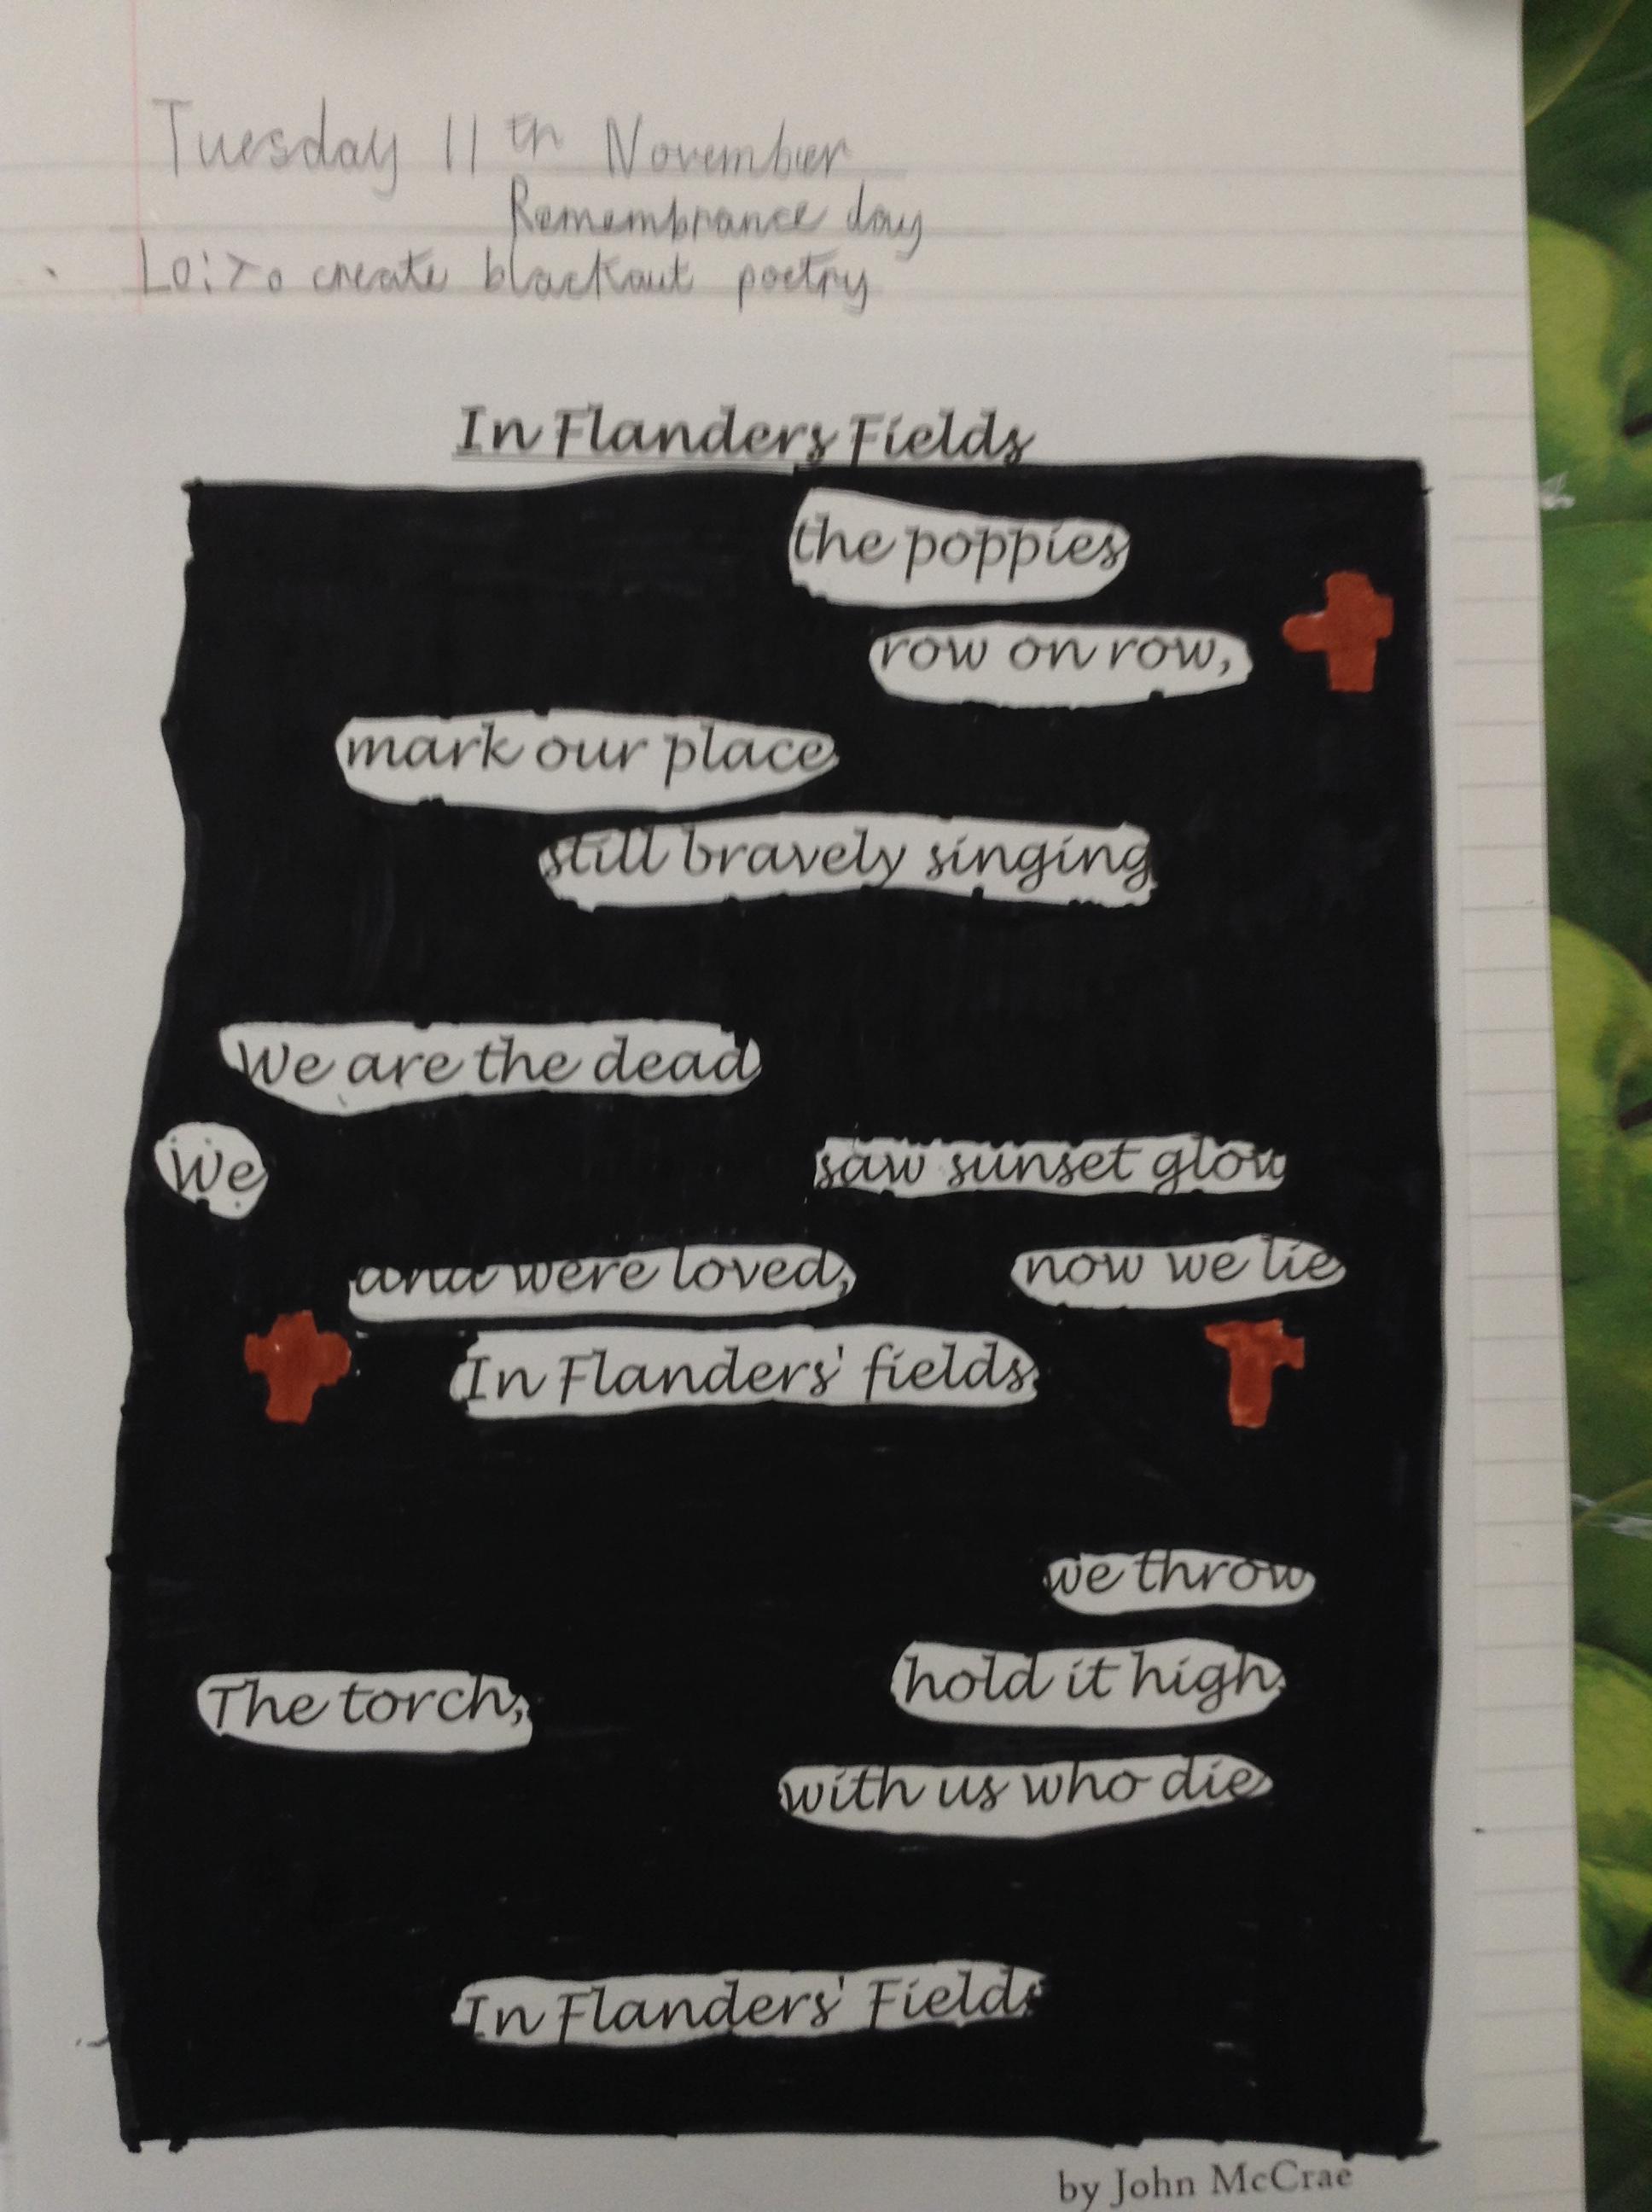 Tuesday 11th November
Remembrance day
Lo: To create blackout poetry
In Flanders Fields
the poppies
row on row,
mark our place
still bravely singing
We are the dead
We saw sunset glow
and were loved, now we lie
In Flanders' fields.
we throw
The torch, hold it high.
with us who die
In Flanders' Fields
by John McCrae